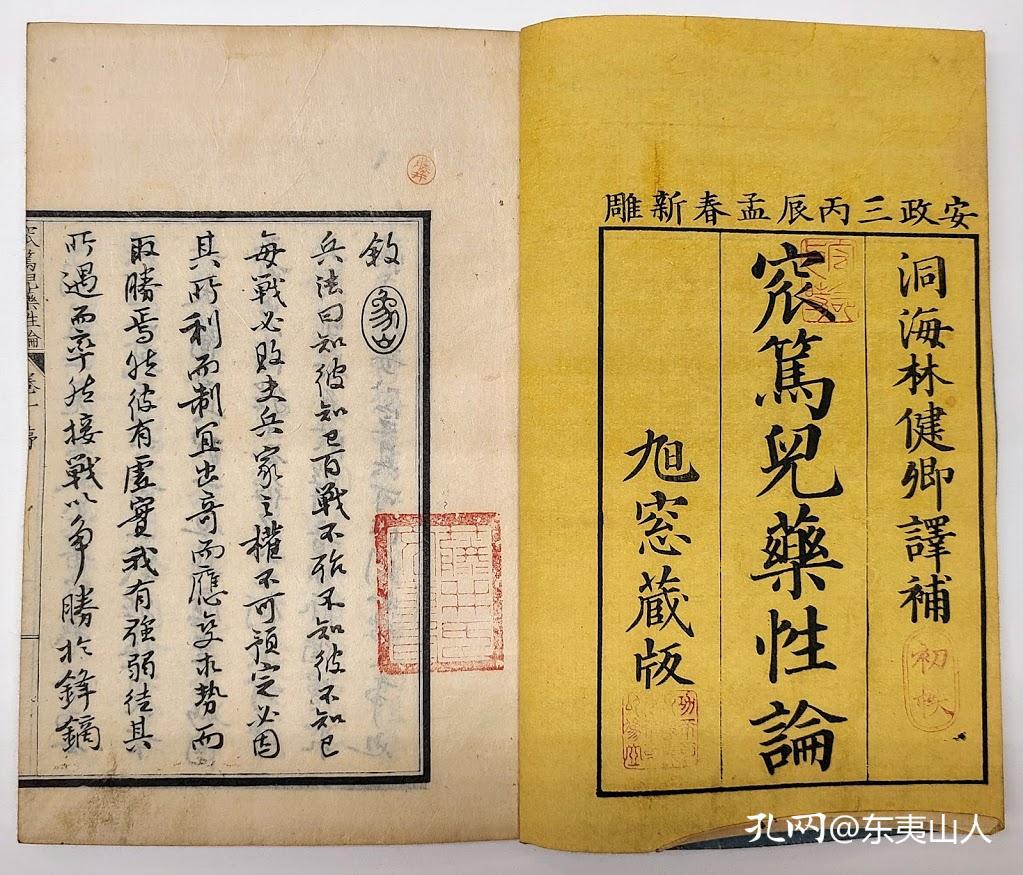 安政三丙辰孟春新雕
洞海林健卿譯補
初帙
窊篤兒藥性論
旭窓藏版
敘
象山
兵法曰知彼知己百戰不殆不知彼不知己
每戰必敗夫兵家之權不可預定必因
其所利而制宜出奇而應變求勢而
取勝焉然彼有虛實我有強弱徒其
所遇而率然接戰以爭勝於鋒鏑
窊篤兒藥性論 卷一 序
孔网@东夷山人